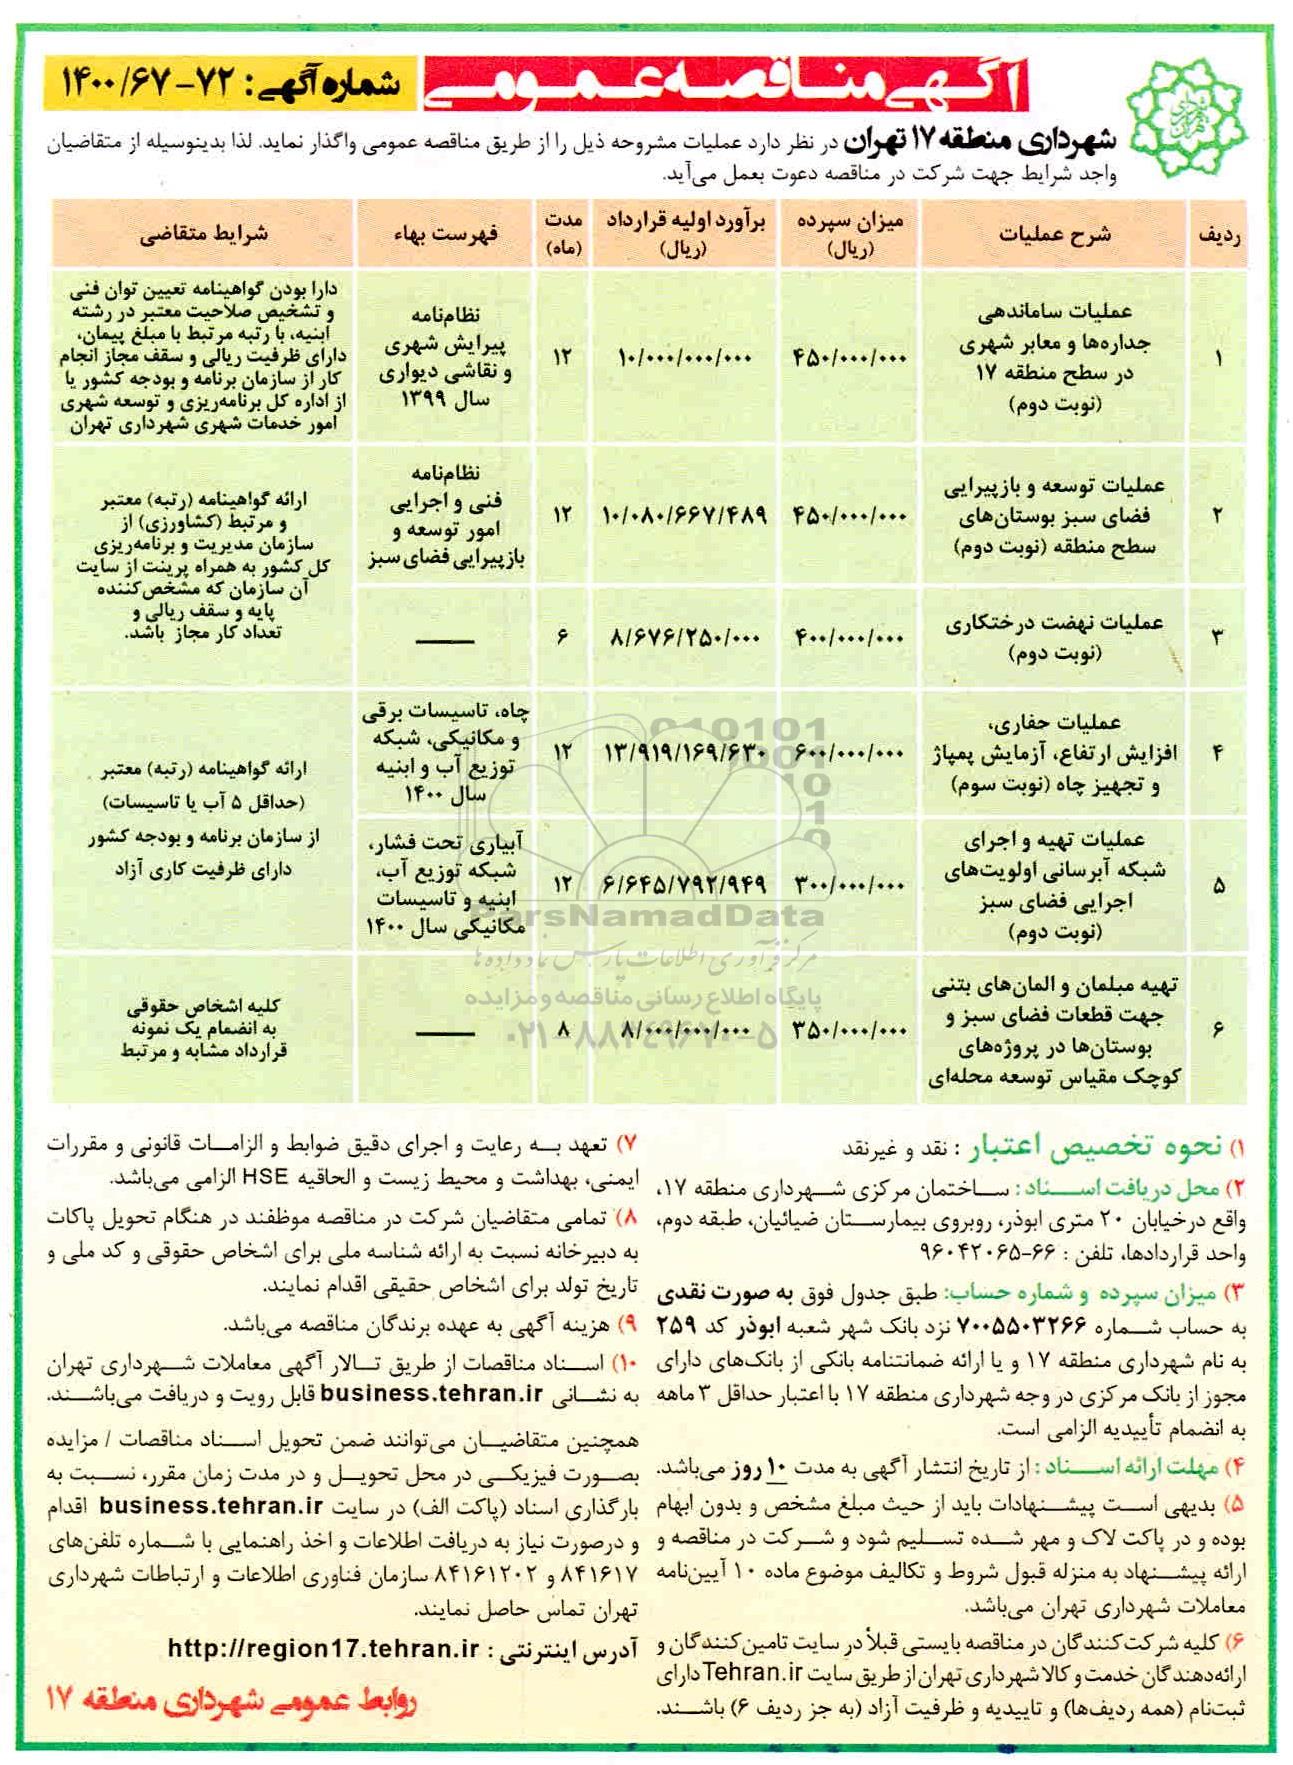 آگهی مناقصه عمومی
شماره آگهی: ۷۲-۱۴۰۰/۶۷
شهرداری منطقه ۱۷ تهران در نظر دارد عملیات مشروحه ذیل را از طریق مناقصه عمومی واگذار نماید. لذا بدینوسیله از متقاضیان
واجد شرایط جهت شرکت در مناقصه دعوت بعمل می‌آید.
ردیف
شرح عملیات
میزان سپرده
(ریال)
برآورد اولیه قرارداد
(ریال)
مدت
(ماه)
فهرست بهاء
شرایط متقاضی
۱
عملیات ساماندهی
جداره‌ها و معابر شهری
در سطح منطقه ۱۷
(نوبت دوم)
۴۵۰/۰۰۰/۰۰۰
۱۰/۰۰۰/۰۰۰/۰۰۰
۱۲
نظام‌نامه
پیرایش شهری
و نقاشی دیواری
سال ۱۳۹۹
دارا بودن گواهینامه تعیین توان فنی
و تشخیص صلاحیت معتبر در رشته
ابنیه، با رتبه مرتبط با مبلغ پیمان،
دارای ظرفیت ریالی و سقف مجاز انجام
کار از سازمان برنامه و بودجه کشور یا
از اداره کل برنامه‌ریزی و توسعه شهری
امور خدمات شهری شهرداری تهران
۲
عملیات توسعه و بازپیرایی
فضای سبز بوستان‌های
سطح منطقه (نوبت دوم)
۴۵۰/۰۰۰/۰۰۰
۱۰/۰۸۰/۶۶۷/۴۸۹
۱۲
نظام‌نامه
فنی و اجرایی
امور توسعه و
بازپیرایی فضای سبز
ارائه گواهینامه (رتبه) معتبر
و مرتبط (کشاورزی) از
سازمان مدیریت و برنامه‌ریزی
کل کشور به همراه پرینت از سایت
آن سازمان که مشخص‌کننده
پایه و سقف ریالی و
تعداد کار مجاز باشد.
۳
عملیات نهضت درختکاری
(نوبت دوم)
۴۰۰/۰۰۰/۰۰۰
۸/۶۷۶/۲۵۰/۰۰۰
۶
——
۴
عملیات حفاری،
افزایش ارتفاع، آزمایش پمپاژ
و تجهیز چاه (نوبت سوم)
۶۰۰/۰۰۰/۰۰۰
۱۳/۹۱۹/۱۶۹/۶۳۰
۱۲
چاه، تاسیسات برقی
و مکانیکی، شبکه
توزیع آب و ابنیه
سال ۱۴۰۰
ارائه گواهینامه (رتبه) معتبر
(حداقل ۵ آب یا تاسیسات)
از سازمان برنامه و بودجه کشور
دارای ظرفیت کاری آزاد
۵
عملیات تهیه و اجرای
شبکه آبرسانی اولویت‌های
اجرایی فضای سبز
(نوبت دوم)
۳۰۰/۰۰۰/۰۰۰
۶/۶۴۵/۷۹۲/۹۴۹
۱۲
آبیاری تحت فشار،
شبکه توزیع آب،
ابنیه و تاسیسات
مکانیکی سال ۱۴۰۰
۶
تهیه مبلمان و المان‌های بتنی
جهت قطعات فضای سبز و
بوستان‌ها در پروژه‌های
کوچک مقیاس توسعه محله‌ای
۳۵۰/۰۰۰/۰۰۰
۸/۰۰۰/۰۰۰/۰۰۰
۸
——
کلیه اشخاص حقوقی
به انضمام یک نمونه
قرارداد مشابه و مرتبط
ParsNamadData
مرکز فرآوری اطلاعات پارس نماد داده‌ها
پایگاه اطلاع رسانی مناقصه و مزایده
۰۲۱-۸۸۳۴۹۶۷۰-۵
۱) نحوه تخصیص اعتبار : نقد و غیرنقد
۲) محل دریافت اسناد : ساختمان مرکزی شهرداری منطقه ۱۷،
واقع درخیابان ۲۰ متری ابوذر، روبروی بیمارستان ضیائیان، طبقه دوم،
واحد قراردادها، تلفن : ۶۶-۹۶۰۴۲۰۶۵
۳) میزان سپرده و شماره حساب: طبق جدول فوق به صورت نقدی
به حساب شماره ۷۰۰۵۵۰۳۲۶۶ نزد بانک شهر شعبه ابوذر کد ۲۵۹
به نام شهرداری منطقه ۱۷ و یا ارائه ضمانتنامه بانکی از بانک‌های دارای
مجوز از بانک مرکزی در وجه شهرداری منطقه ۱۷ با اعتبار حداقل ۳ ماهه
به انضمام تأییدیه الزامی است.
۴) مهلت ارائه اسناد : از تاریخ انتشار آگهی به مدت ۱۰ روز می‌باشد.
۵) بدیهی است پیشنهادات باید از حیث مبلغ مشخص و بدون ابهام
بوده و در پاکت لاک و مهر شده تسلیم شود و شرکت در مناقصه و
ارائه پیشنهاد به منزله قبول شروط و تکالیف موضوع ماده ۱۰ آیین‌نامه
معاملات شهرداری تهران می‌باشد.
۶) کلیه شرکت‌کنندگان در مناقصه بایستی قبلاً در سایت تامین‌کنندگان و
ارائه‌دهندگان خدمت و کالا شهرداری تهران از طریق سایت Tehran.ir دارای
ثبت‌نام (همه ردیف‌ها) و تاییدیه و ظرفیت آزاد (به جز ردیف ۶) باشند.
۷) تعهد به رعایت و اجرای دقیق ضوابط و الزامات قانونی و مقررات
ایمنی، بهداشت و محیط زیست و الحاقیه HSE الزامی می‌باشد.
۸) تمامی متقاضیان شرکت در مناقصه موظفند در هنگام تحویل پاکات
به دبیرخانه نسبت به ارائه شناسه ملی برای اشخاص حقوقی و کد ملی و
تاریخ تولد برای اشخاص حقیقی اقدام نمایند.
۹) هزینه آگهی به عهده برندگان مناقصه می‌باشد.
۱۰) اسناد مناقصات از طریق تالار آگهی معاملات شهرداری تهران
به نشانی business.tehran.ir قابل رویت و دریافت می‌باشند.
همچنین متقاضیان می‌توانند ضمن تحویل اسناد مناقصات / مزایده
بصورت فیزیکی در محل تحویل و در مدت زمان مقرر، نسبت به
بارگذاری اسناد (پاکت الف) در سایت business.tehran.ir اقدام
و درصورت نیاز به دریافت اطلاعات و اخذ راهنمایی با شماره تلفن‌های
۸۴۱۶۱۷ و ۸۴۱۶۱۲۰۲ سازمان فناوری اطلاعات و ارتباطات شهرداری
تهران تماس حاصل نمایند.
آدرس اینترنتی : http://region17.tehran.ir
روابط عمومی شهرداری منطقه ۱۷